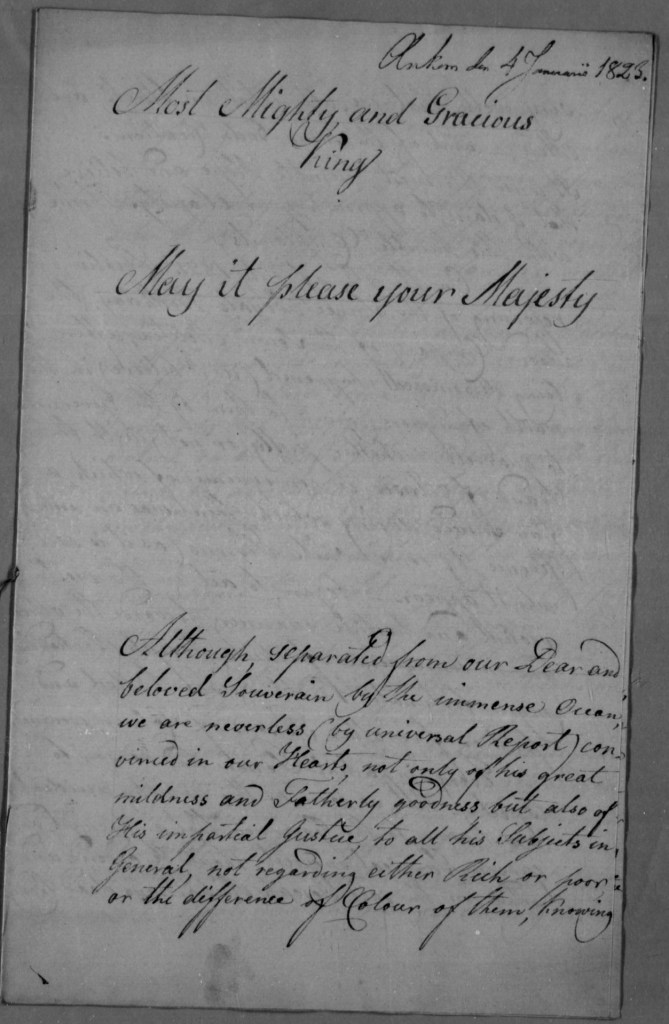 den 4 Januarii 1823.
Most Mighty and Gracious
King
May it please your Majesty
Although, separated from our Dear and
beloved Souverain by the immense Ocean,
we are neverless (by universal Report) con-
vinced in our Hearts, not only of his great
mildness and Fatherly goodness but also of
His impartial Justice, to all his Subjects in
General, not regarding either Rich or poor
or the difference of Colour of them, Knowing